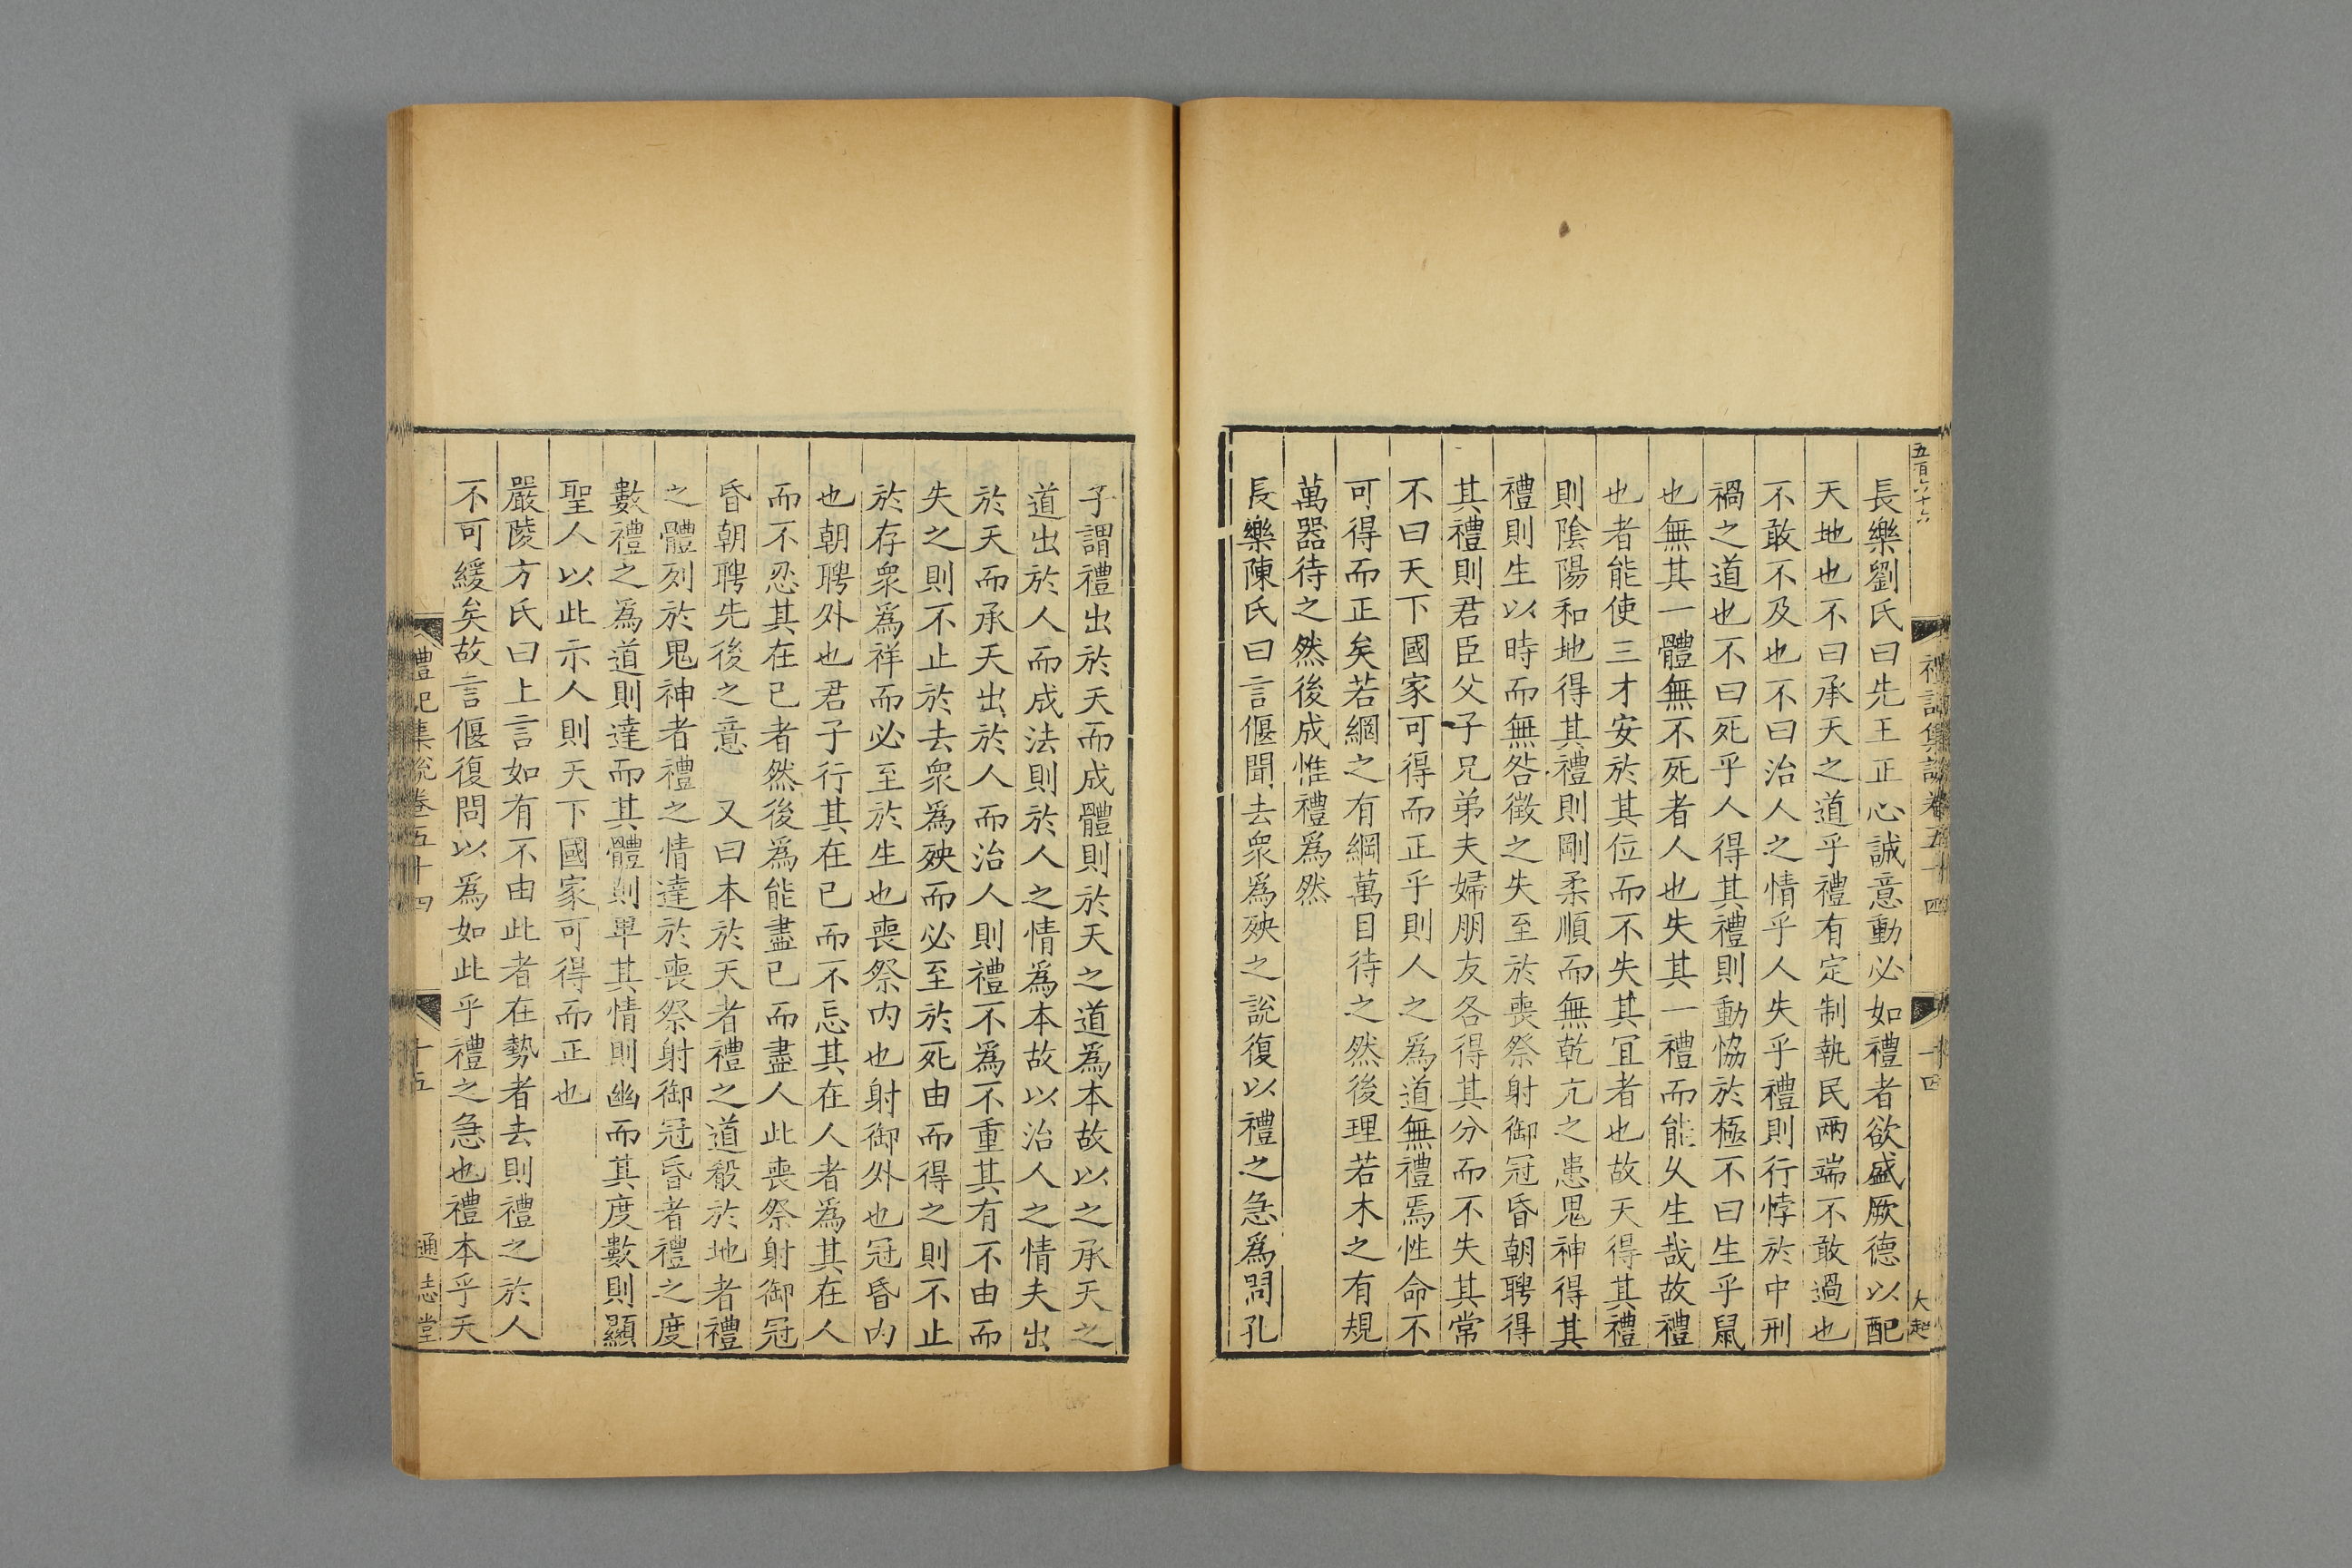 五百六十六
禮記集說卷五十四
十四
大起
長樂劉氏曰先王正心誠意動必如禮者欲盛厥德以配
天地也不曰承天之道乎禮有定制執民兩端不敢過也
不敢不及也不曰治人之情乎人失乎禮則行悖於中刑
禍之道也不曰死乎人得其禮則動恊於極不曰生乎鼠
也無其一體無不死者人也失其一禮而能乆生哉故禮
也者能使三才安於其位而不失其冝者也故天得其禮
則陰陽和地得其禮則剛柔順而無乾亢之患鬼神得其
禮則生以時而無咎徵之失至於喪祭射御冠昏朝聘得
其禮則君臣父子兄弟夫婦朋友各得其分而不失其常
不曰天下國家可得而正乎則人之為道無禮焉性命不
可得而正矣若綱之有綱萬目待之然後理若木之有規
萬器待之然後成惟禮為然
長樂陳氏曰言偃聞去衆為殃之說復以禮之急為問孔
子謂禮出於天而成體則於天之道為本故以之承天之
道出於人而成法則於人之情為本故以治人之情夫出
於天而承天出於人而治人則禮不為不重其有不由而
失之則不止於去衆為殃而必至於死由而得之則不止
於存衆為祥而必至於生也喪祭内也射御外也冠昏内
也朝聘外也君子行其在已而不忘其在人者為其在人
而不忍其在已者然後為能盡已而盡人此喪祭射御冠
昏朝聘先後之意　又曰本於天者禮之道殽於地者禮
之體列於鬼神者禮之情達於喪祭射御冠昏者禮之度
數禮之為道則達而其體則畢其情則幽而其度數則顯
聖人以此示人則天下國家可得而正也
嚴陵方氏曰上言如有不由此者在勢者去則禮之於人
不可緩矣故言偃復問以為如此乎禮之急也禮本乎天
禮記集說卷五十四
十五
通志堂